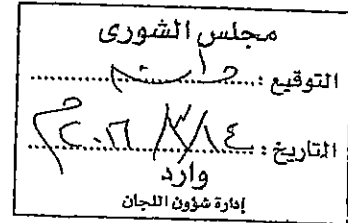 مجلس الشورى
التوقيع :
التاريخ : ١٤/٣/٢٠١٦م
وارد
إدارة شؤون اللجان